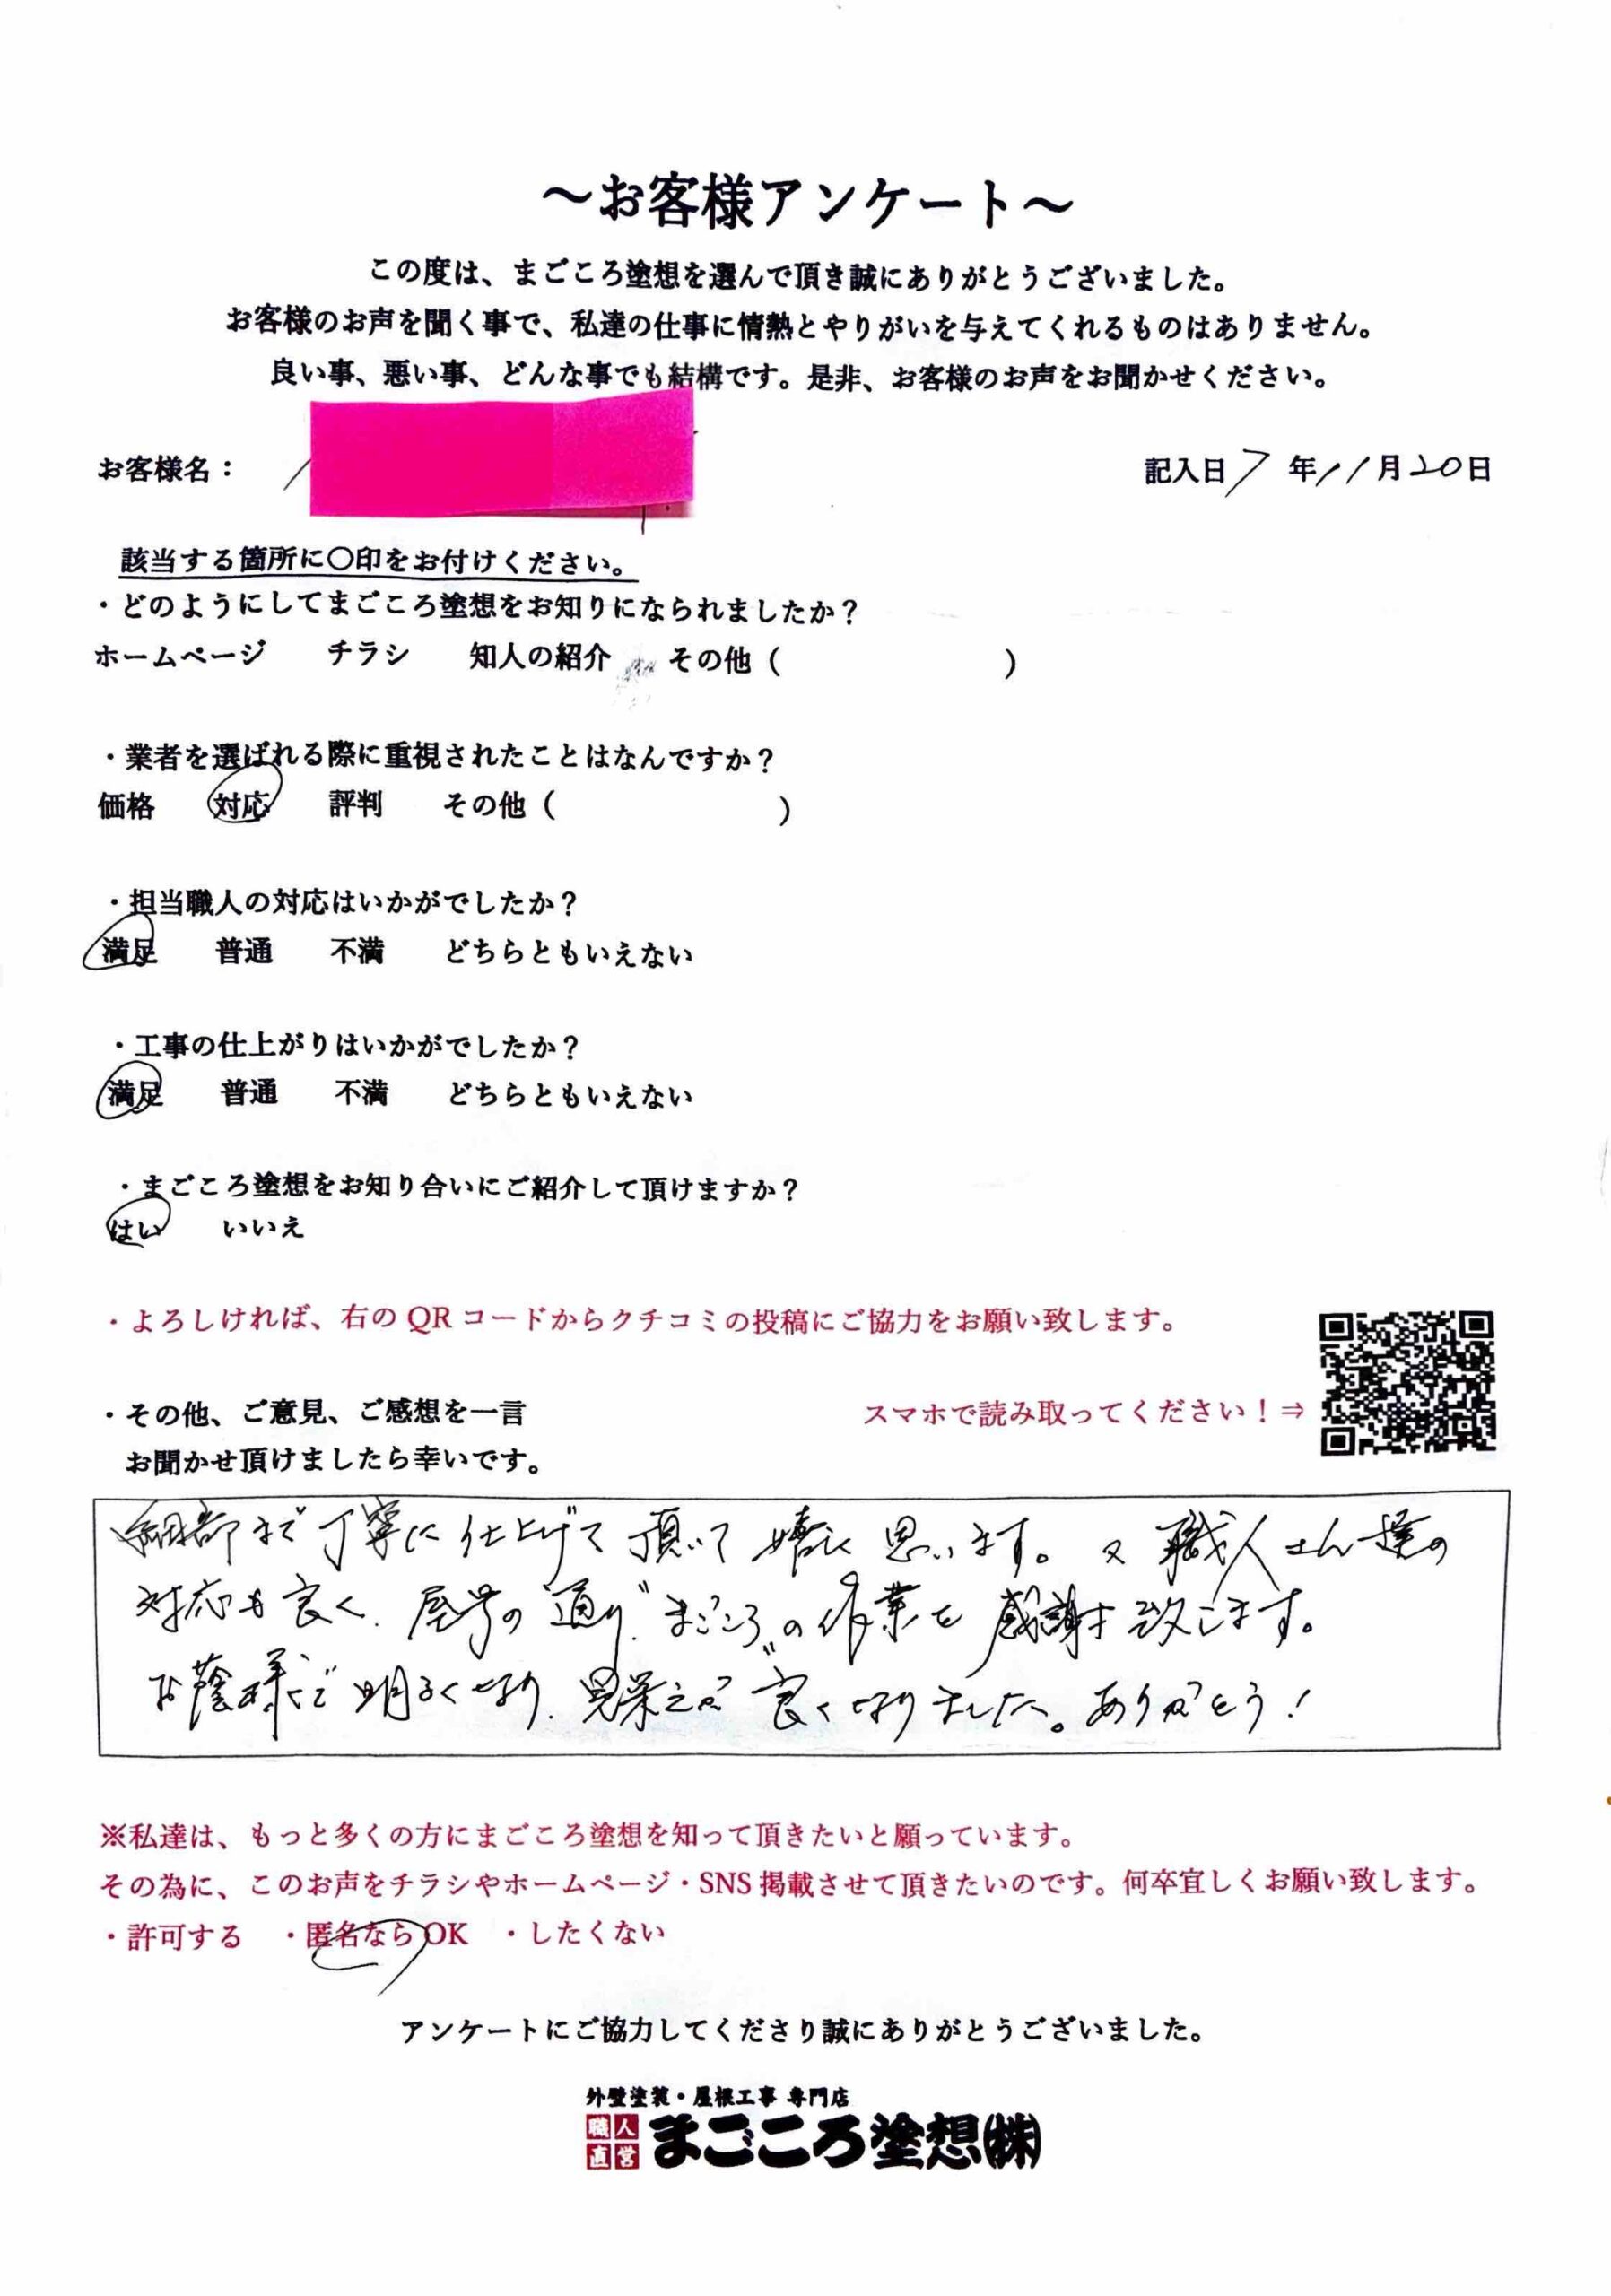 ～お客様アンケート～
この度は、まごころ塗想を選んで頂き誠にありがとうございました。
お客様のお声を聞く事で、私達の仕事に情熱とやりがいを与えてくれるものはありません。
良い事、悪い事、どんな事でも結構です。是非、お客様のお声をお聞かせください。
お客様名： 記入日7年11月20日
該当する箇所に〇印をお付けください。
・どのようにしてまごころ塗想をお知りになられましたか？
ホームページ チラシ 知人の紹介 その他（ ）
・業者を選ばれる際に重視されたことはなんですか？
価格 対応 評判 その他（ ）
・担当職人の対応はいかがでしたか？
満足 普通 不満 どちらともいえない
・工事の仕上がりはいかがでしたか？
満足 普通 不満 どちらともいえない
・まごころ塗想をお知り合いにご紹介して頂けますか？
はい いいえ
・よろしければ、右のQRコードからクチコミの投稿にご協力をお願い致します。
・その他、ご意見、ご感想を一言 スマホで読み取ってください！⇒
お聞かせ頂けましたら幸いです。
細部まで丁寧に仕上げて頂いて嬉しく思います。又職人さん達の
対応も良く、屋号の通り、"まごころ"の作業を感謝致します。
お蔭様で明るくなり、見栄えが良くなりました。ありがとう！
※私達は、もっと多くの方にまごころ塗想を知って頂きたいと願っています。
その為に、このお声をチラシやホームページ・SNS掲載させて頂きたいのです。何卒宜しくお願い致します。
・許可する ・匿名ならOK ・したくない
アンケートにご協力してくださり誠にありがとうございました。
外壁塗装・屋根工事 専門店
職人直営 まごころ塗想㈱